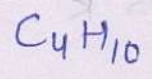 C₄H₁₀